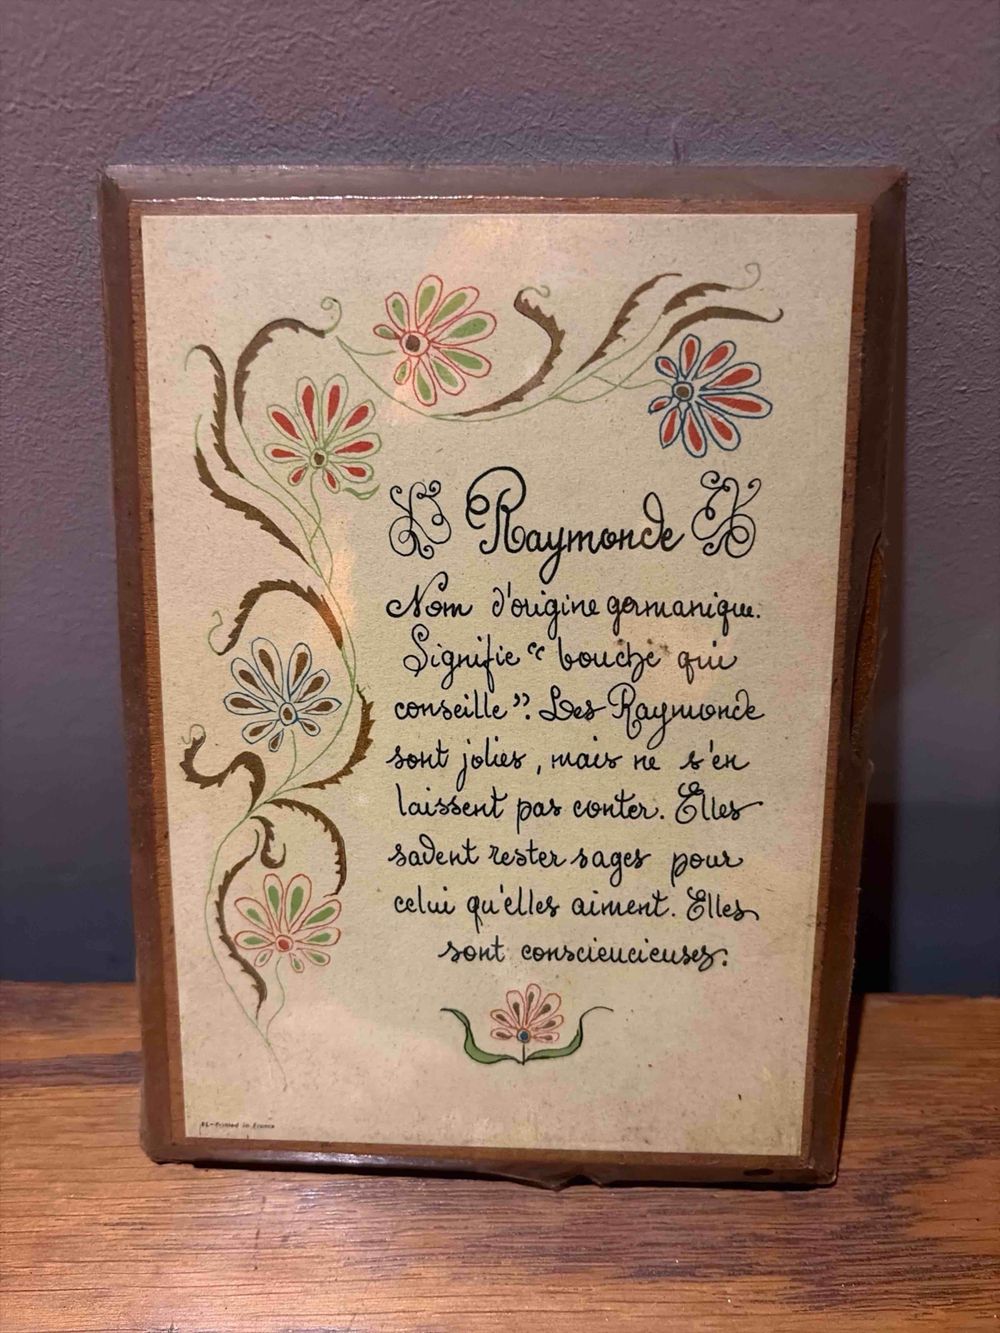 Raymonde
Nom d'origine germanique.
Signifie "bouche qui
conseille". Les Raymonde
sont jolies, mais ne s'en
laissent pas conter. Elles
savent rester sages pour
celui qu'elles aiment. Elles
sont consciencieuses.
Printed in France